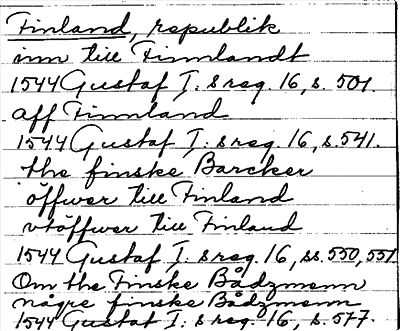 Finland, republik
inn till Finnlandt
1544 Gustaf I:s reg. 16, s. 501.
aff Finnland
1544 Gustaf I:s reg. 16, s. 541.
the finske Barcker
öffwer till Finland
vtöffwer till Finland
1544 Gustaf I:s reg. 16, ss. 550, 551
Om the Finske Bådzmenn
någre finske Bådzmenn
1544 Gustaf I:s reg. 16, s. 577.